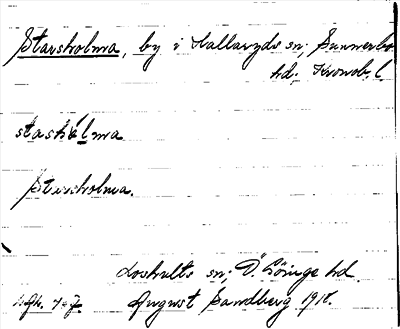 Starsholma, by i Hallaryds sn; Sunnerbo
hd; Kronob. l.
stashólma
Starsholma.
Loshults sn; Ö. Göinge hd.
August Sandberg 1916.